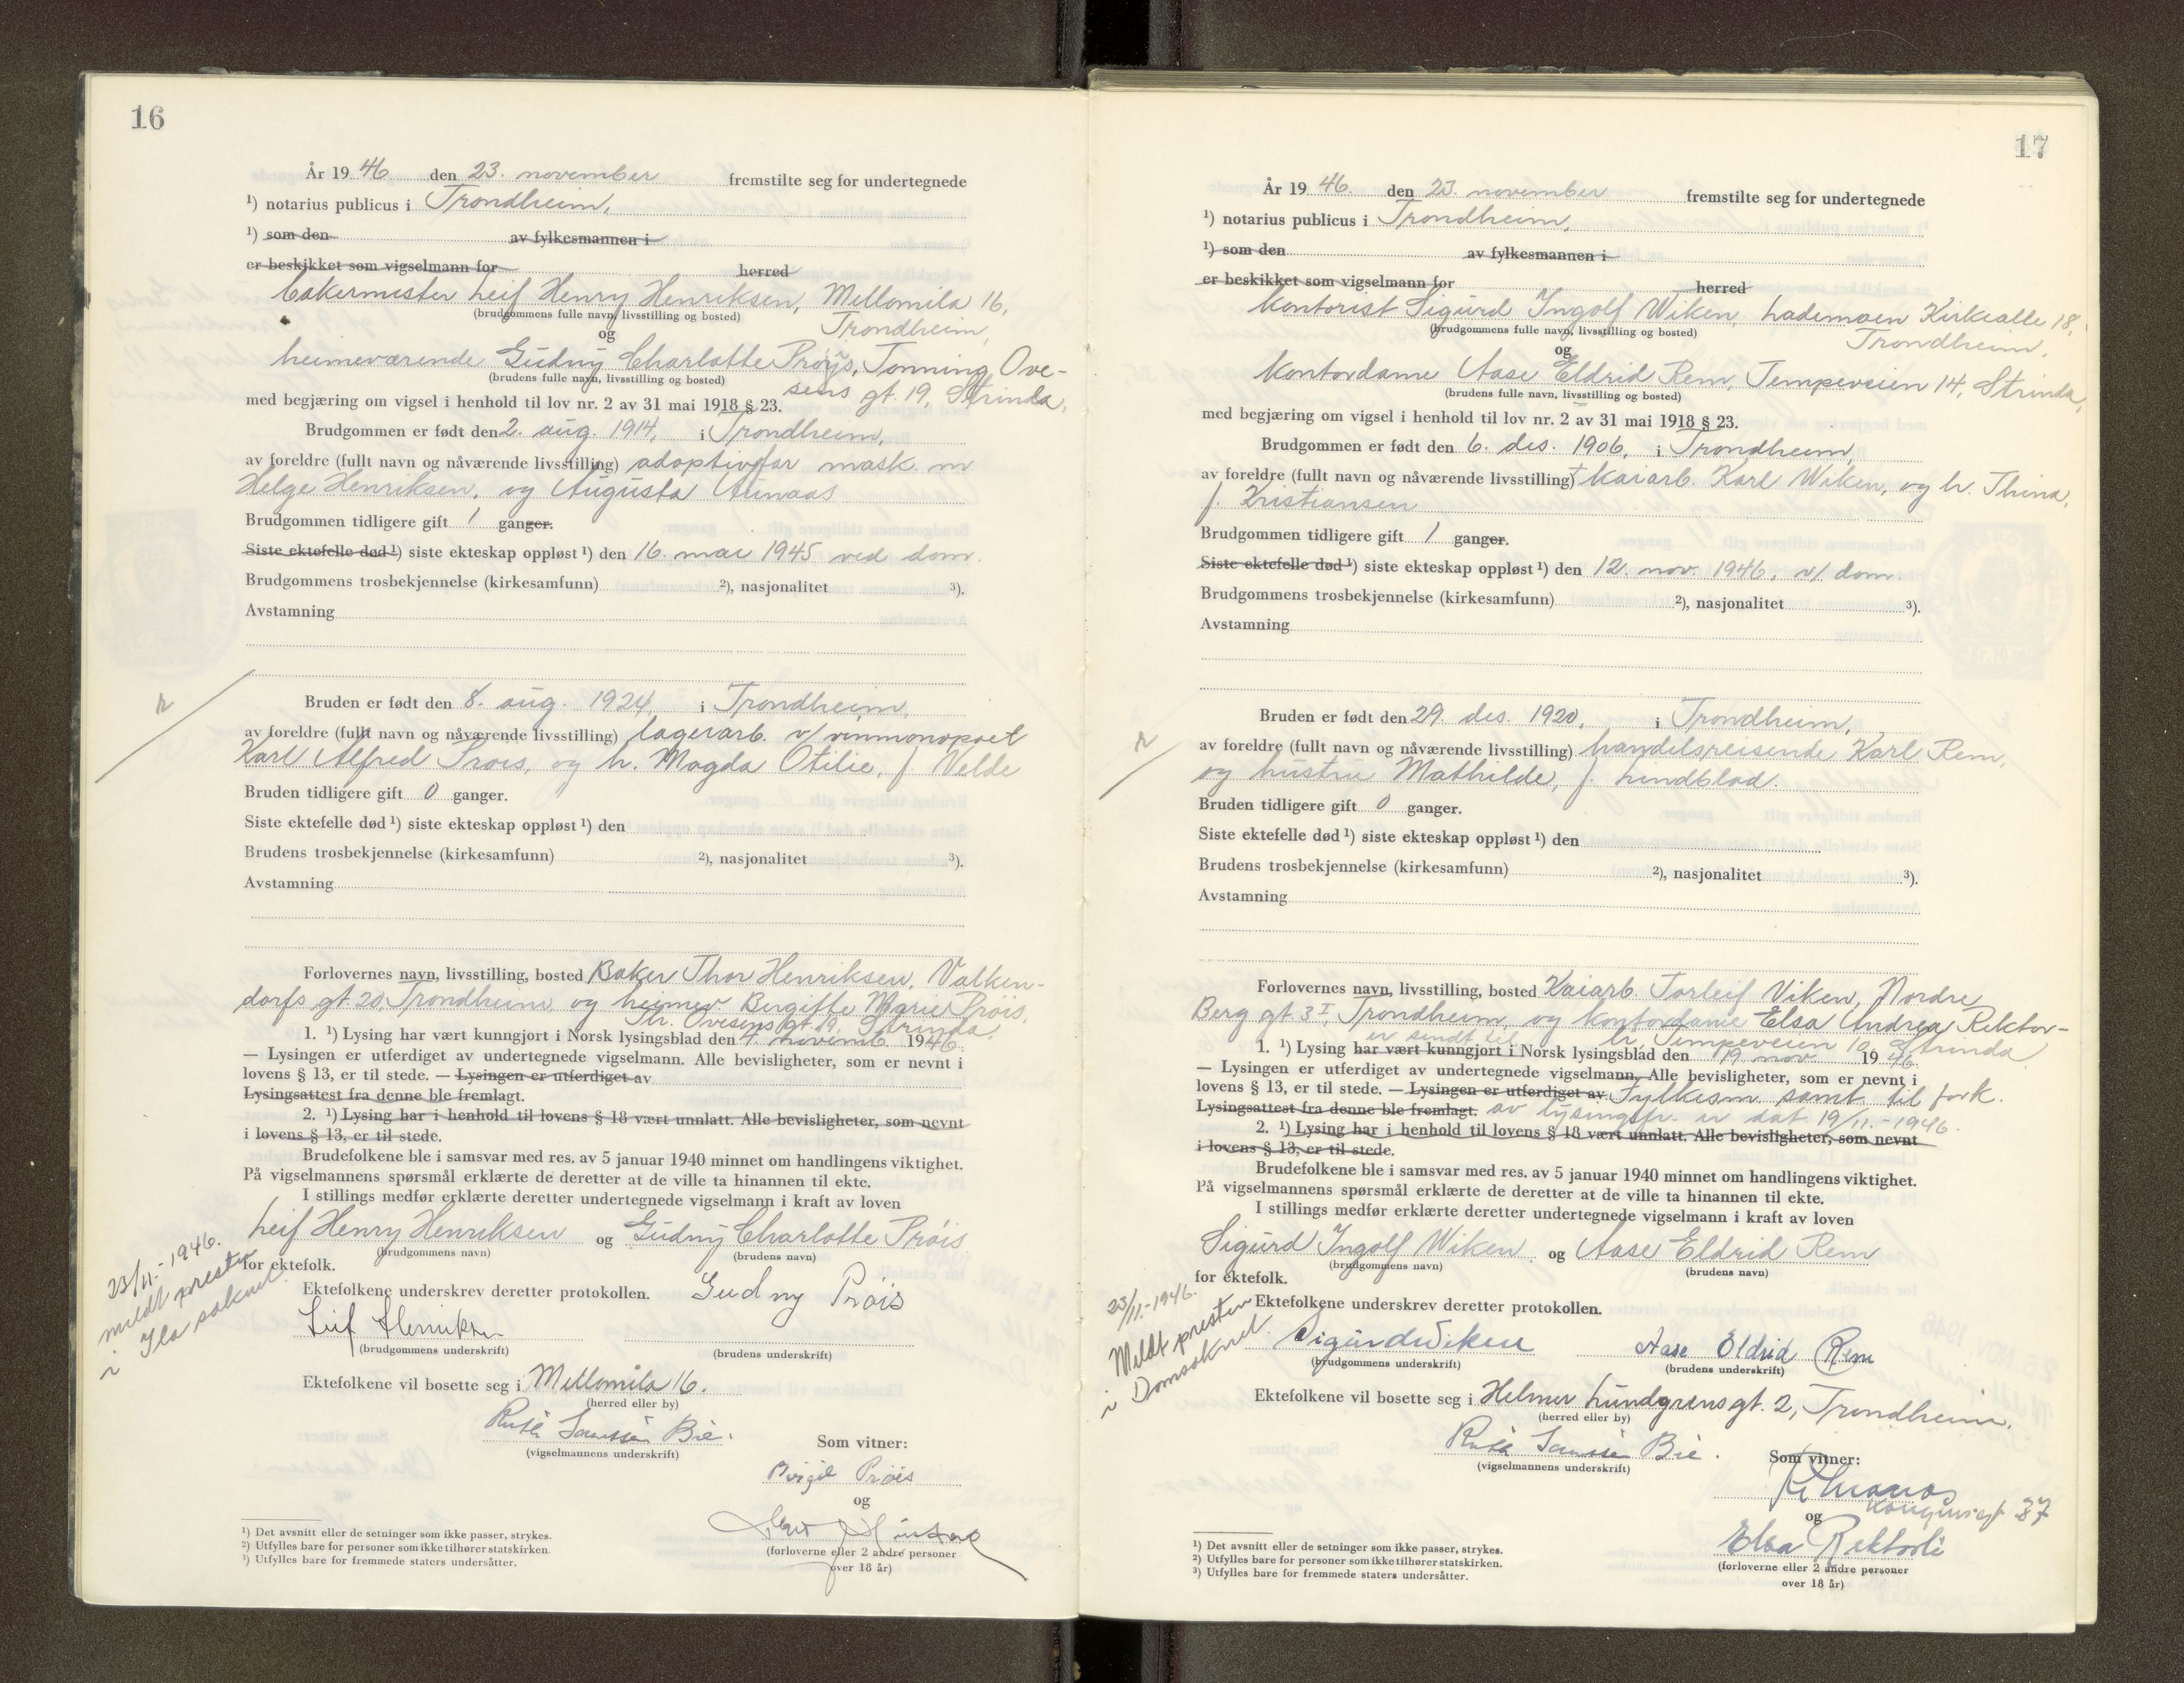 16
År 19 46 den 23. november fremstilte seg for undertegnede
¹) notarius publicus i Trondheim,
¹) som den av fylkesmannen i
er beskikket som vigselmann for herred
bakermester Leif Henry Henriksen, Mellomila 16,
(brudgommens fulle navn, livsstilling og bosted) Trondheim,
og
heimeværende Gudny Charlotte Prøis, Tonning Ove-
(brudens fulle navn, livsstilling og bosted) sens gt. 19, Strinda,
med begjæring om vigsel i henhold til lov nr. 2 av 31 mai 1918 § 23.
Brudgommen er født den 2. aug. 1914, i Trondheim,
av foreldre (fullt navn og nåværende livsstilling) adoptivfar mask. m
Helge Henriksen, og Augusta Aunaas
Brudgommen tidligere gift 1 ganger.
Siste ektefelle død ¹) siste ekteskap oppløst ¹) den 16. mai 1945 ved dom.
Brudgommens trosbekjennelse (kirkesamfunn) ²), nasjonalitet ³).
Avstamning
Bruden er født den 8. aug. 1924, i Trondheim,
av foreldre (fullt navn og nåværende livsstilling) lagerarb. v/vinmonopolet
Karl Alfred Prøis, og h. Magda Otilie, f. Velde
Bruden tidligere gift 0 ganger.
Siste ektefelle død ¹) siste ekteskap oppløst ¹) den
Brudens trosbekjennelse (kirkesamfunn) ²), nasjonalitet ³).
Avstamning
Forlovernes navn, livsstilling, bosted Baker Thor Henriksen, Valken-
dorfs gt. 20, Trondheim, og heimev. Birgitte Marie Prøis,
Th. Ovesens gt. 19, Strinda,
1. ¹) Lysing har vært kunngjort i Norsk lysingsblad den 4. novemb. 1946.
— Lysingen er utferdiget av undertegnede vigselmann. Alle bevisligheter, som er nevnt i
lovens § 13, er til stede. — Lysingen er utferdiget av
Lysingsattest fra denne ble fremlagt.
2. ¹) Lysing har i henhold til lovens § 18 vært unnlatt. Alle bevisligheter, som nevnt
i lovens § 13, er til stede.
Brudefolkene ble i samsvar med res. av 5 januar 1940 minnet om handlingens viktighet.
På vigselmannens spørsmål erklærte de deretter at de ville ta hinannen til ekte.
I stillings medfør erklærte deretter undertegnede vigselmann i kraft av loven
Leif Henry Henriksen og Gudny Charlotte Prøis
(brudgommens navn) (brudens navn)
for ektefolk.
23/11.-1946.
meldt presten
i Ila sokn
Ektefolkene underskrev deretter protokollen. Gudny Prøis
Leif Henriksen
(brudgommens underskrift) (brudens underskrift)
Ektefolkene vil bosette seg i Mellomila 16.
(herred eller by)
Bie.
(vigselmannens underskrift)
Som vitner:
Prøis
og
(forloverne eller 2 andre personer
over 18 år)
¹) Det avsnitt eller de setninger som ikke passer, strykes.
²) Utfylles bare for personer som ikke tilhører statskirken.
³) Utfylles bare for fremmede staters undersåtter.
17
År 19 46. den 23. november fremstilte seg for undertegnede
¹) notarius publicus i Trondheim,
¹) som den av fylkesmannen i
er beskikket som vigselmann for herred
kontorist Sigurd Ingolf Wiken, Lademoen Kirkealle 18,
(brudgommens fulle navn, livsstilling og bosted) Trondheim,
og
kontordame Aase Eldrid Rem, Tempeveien 14, Strinda,
(brudens fulle navn, livsstilling og bosted)
med begjæring om vigsel i henhold til lov nr. 2 av 31 mai 1918 § 23.
Brudgommen er født den 6. des. 1906, i Trondheim,
av foreldre (fullt navn og nåværende livsstilling) + kaiarb. Karl Wiken, og h. Thina,
f. Kristiansen
Brudgommen tidligere gift 1 ganger.
Siste ektefelle død ¹) siste ekteskap oppløst ¹) den 12. nov. 1946, v/ dom.
Brudgommens trosbekjennelse (kirkesamfunn) ²), nasjonalitet ³).
Avstamning
Bruden er født den 29. des. 1920, i Trondheim,
av foreldre (fullt navn og nåværende livsstilling) handelsreisende Karl Rem,
og hustru Mathilde, f. Lindblad.
Bruden tidligere gift 0 ganger.
Siste ektefelle død ¹) siste ekteskap oppløst ¹) den
Brudens trosbekjennelse (kirkesamfunn) ²), nasjonalitet ³).
Avstamning
Forlovernes navn, livsstilling, bosted Kaiarb. Torleif Viken, Nordre
Berg gt 3 I, Trondheim, og kontordame Elsa Andrea Rektor-
li, Tempeveien 10, Strinda
er sendt til
1. ¹) Lysing har vært kunngjort i Norsk lysingsblad den 19 nov 19 46
— Lysingen er utferdiget av undertegnede vigselmann, Alle bevisligheter, som er nevnt i
lovens § 13, er til stede. — Lysingen er utferdiget av Fylkesm samt. til fork.
Lysingsattest fra denne ble fremlagt. av lysingsfr. er dat 19/11.-1946.
2. ¹) Lysing har i henhold til lovens § 18 vært unnlatt. Alle bevisligheter, som nevnt
i lovens § 13, er til stede.
Brudefolkene ble i samsvar med res. av 5 januar 1940 minnet om handlingens viktighet.
På vigselmannens spørsmål erklærte de deretter at de ville ta hinannen til ekte.
I stillings medfør erklærte deretter undertegnede vigselmann i kraft av loven
Sigurd Ingolf Wiken og Aase Eldrid Rem
(brudgommens navn) (brudens navn)
for ektefolk.
23/11.-1946.
Meldt presten
i Domsoknet.
Ektefolkene underskrev deretter protokollen.
Sigurd Wiken Aase Eldrid Rem
(brudgommens underskrift) (brudens underskrift)
Ektefolkene vil bosette seg i Helmer Lundgrens gt. 2, Trondheim.
(herred eller by)
Bie.
(vigselmannens underskrift)
Som vitner:
og
Elsa Rektorli
(forloverne eller 2 andre personer
over 18 år)
¹) Det avsnitt eller de setninger som ikke passer, strykes.
²) Utfylles bare for personer som ikke tilhører statskirken.
³) Utfylles bare for fremmede staters undersåtter.